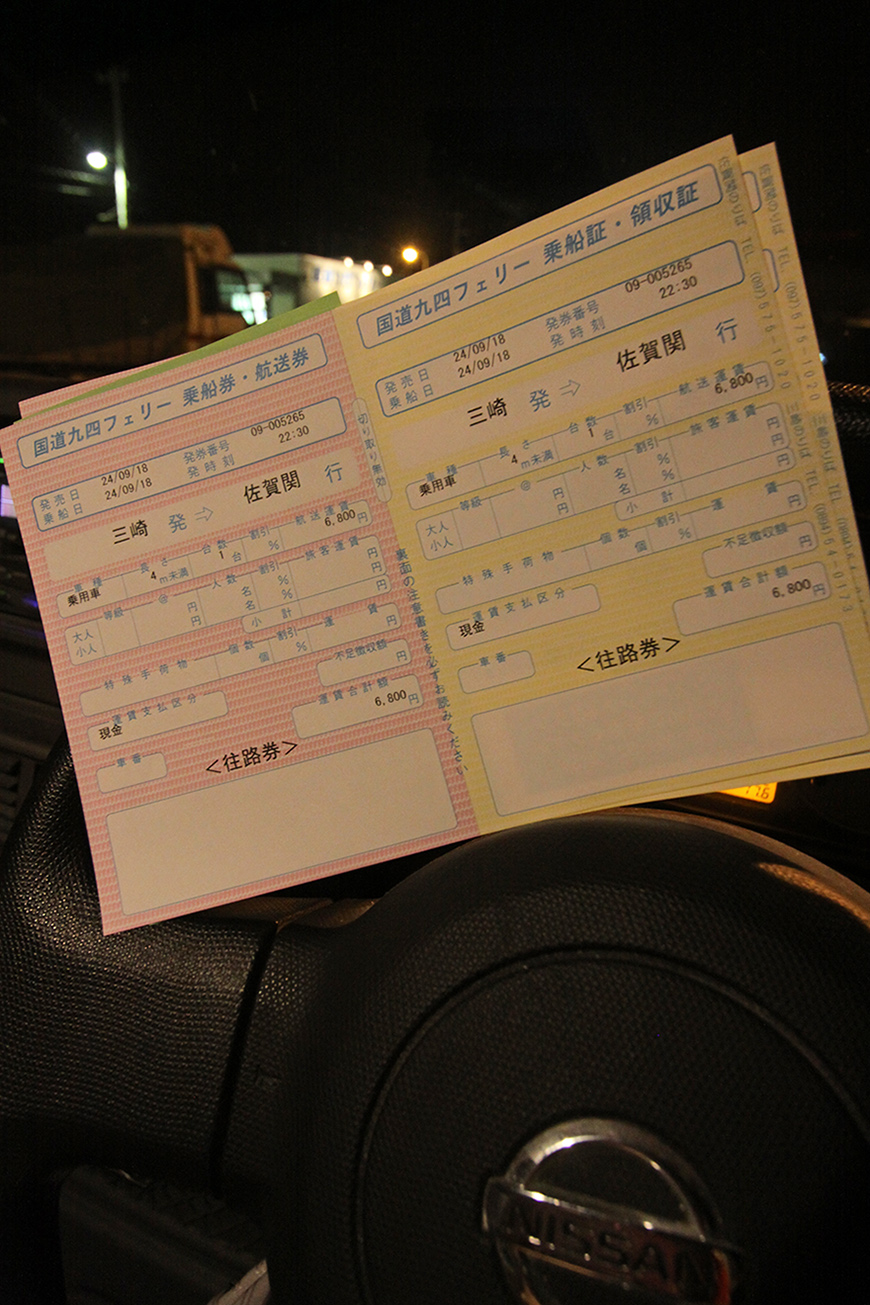 国道九四フェリー 乗船券・航送券
発売日 24/09/18 発券番号 09-005265
乗船日 24/09/18 発時刻 22:30
三崎 発 ⇨ 佐賀関 行
車種 長さ 台数 割引 航送運賃
乗用車 4m未満 1台 % 6,800円
等級 @ 人数 割引 旅客運賃
大人 円 名 % 円
小人 円 名 % 円
小計 円
特殊手荷物 個数 割引 運賃
個 % 円
運賃支払区分 不足徴収額
現金 円
運賃合計額
6,800円
車番
<往路券>
切り取り無効
裏面の注意書きを必ずお読みください
国道九四フェリー 乗船証・領収証
発売日 24/09/18 発券番号 09-005265
乗船日 24/09/18 発時刻 22:30
三崎 発 ⇨ 佐賀関 行
車種 長さ 台数 割引 航送運賃
乗用車 4m未満 1台 % 6,800円
等級 @ 人数 割引 旅客運賃
大人 円 名 % 円
小人 円 名 % 円
小計 円
特殊手荷物 個数 割引 運賃
個 % 円
運賃支払区分 不足徴収額
現金 円
運賃合計額
6,800円
車番
<往路券>
佐賀関のりば TEL (097) 575-1020
三崎のりば TEL (0894) 54-0173
佐賀関のりば TEL (097) 575-1020
三崎のりば TEL
NISSAN